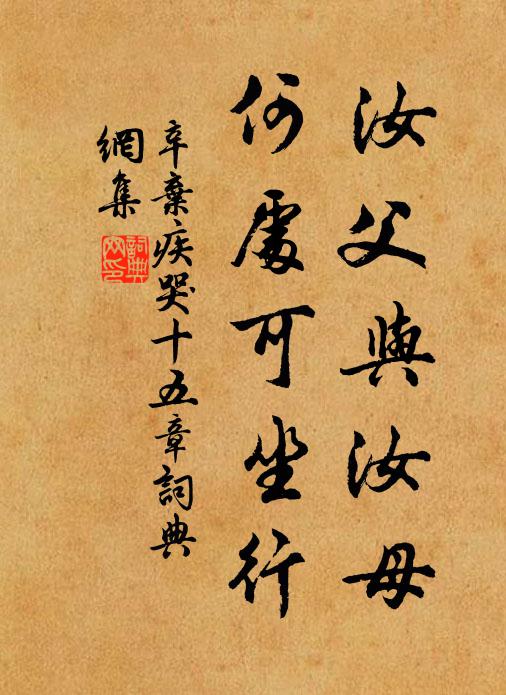 汝父與汝母
何處可坐行
辛棄疾哭十五章詞典
網集
詞典
网印